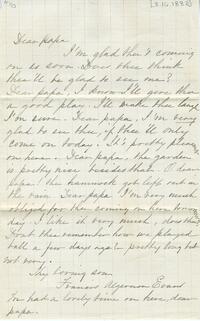 [8.16.1882]
Dear papa,
I'm glad thee's coming
on so soon. Does thee think
thee'll be glad to see me?
Dear papa, I know I'll give thee
a good play. I'll make thee laugh
I'm sure. Dear papa, I'm very
glad to see thee, if thee'll only
come on today. It's pretty
on here. Dear papa, the garden
is pretty nice besides that. O dear
papa! the hammock got left out in
the rain. Dear papa, I'm very much
obliged for thee coming on here
I like it very much, does thee?
Don't thee remember how we played
ball a few days ago? – pretty long but
not very.
Thy loving son,
Francis Algernon Evans
I've had a lovely time on here, dear
papa.